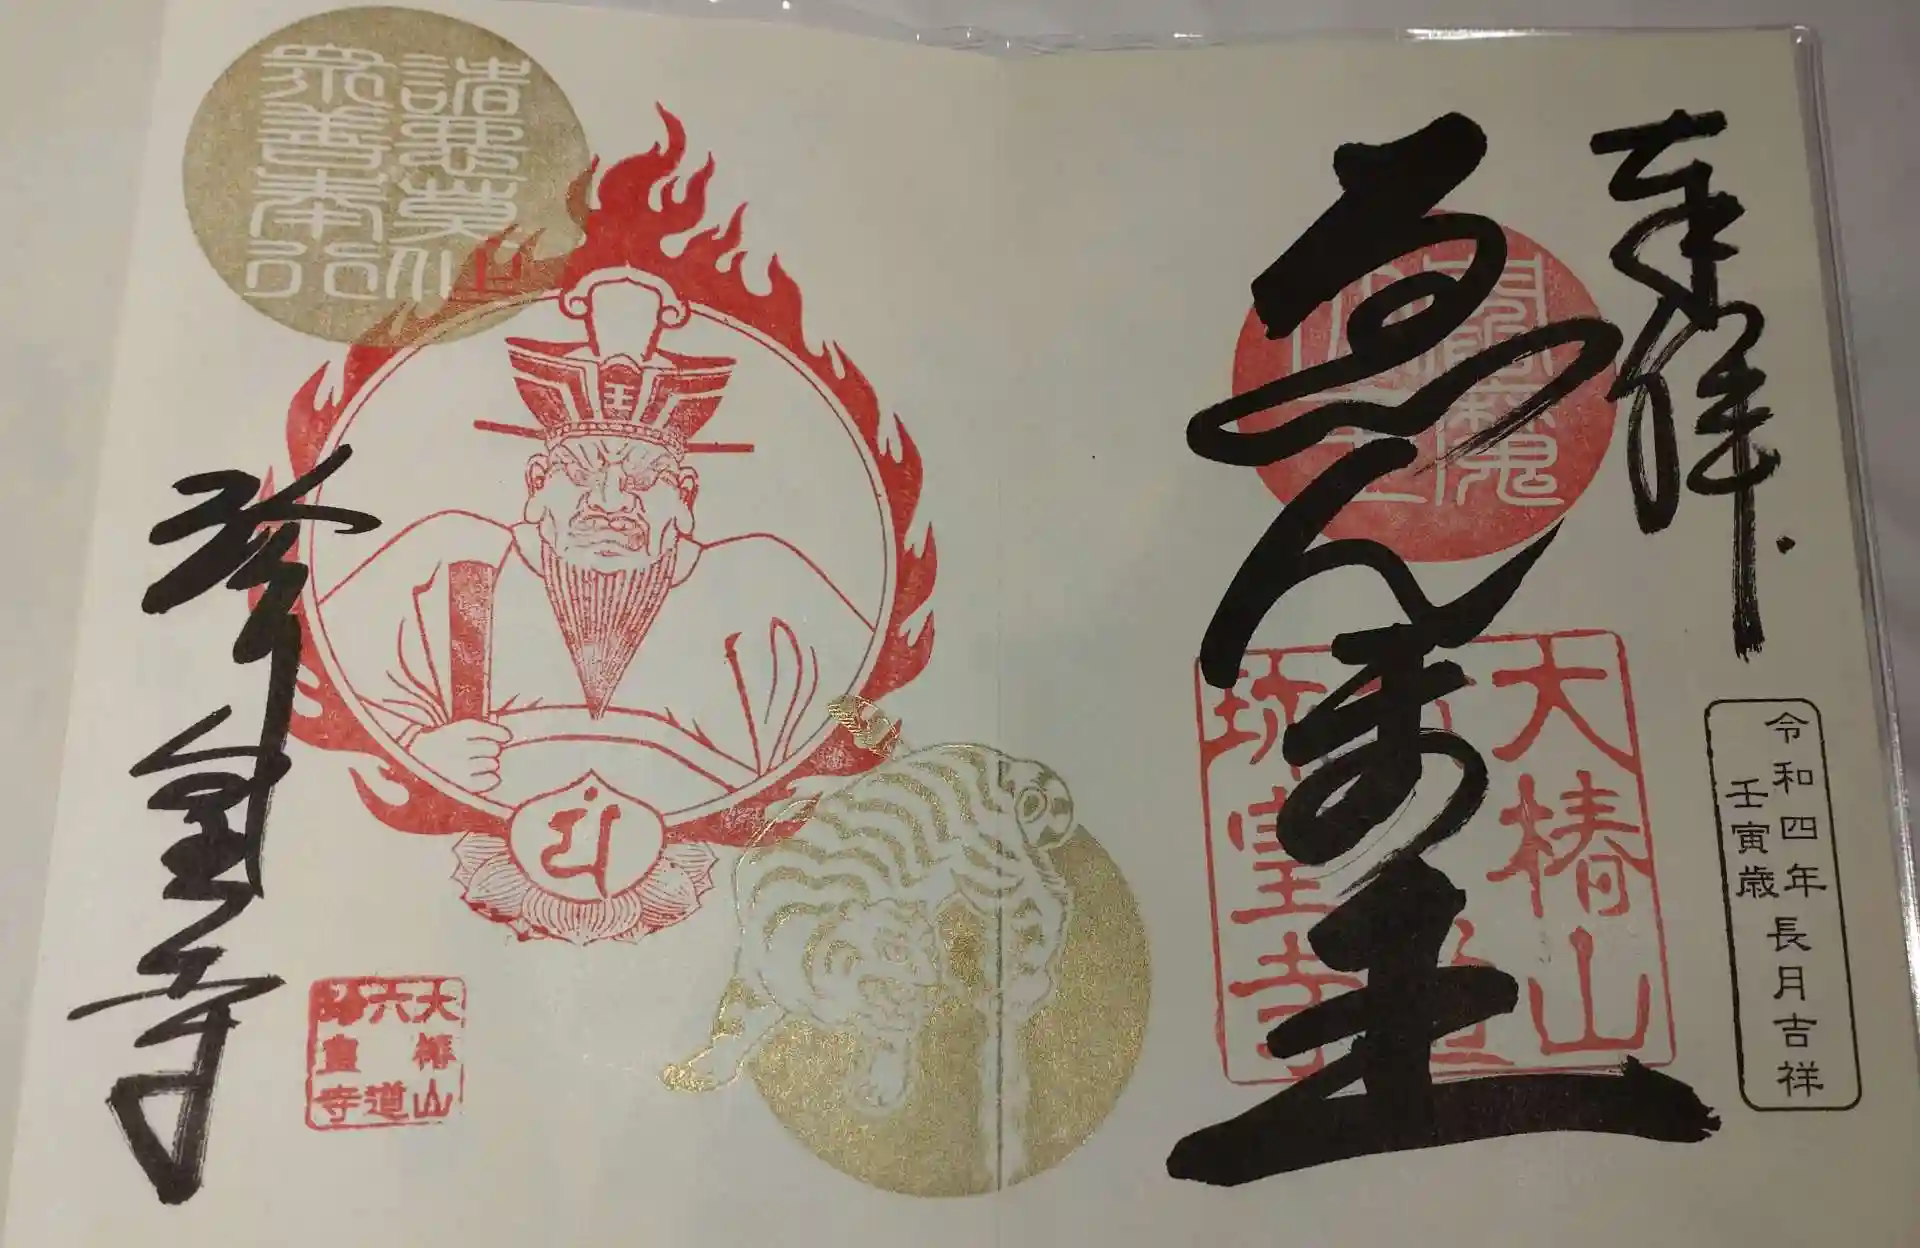 奉拝
令和四年長月吉祥
壬寅歳
ゑんま王
閻魔
大王
大椿山
六道
珎皇寺
諸悪莫作
衆善奉行
王
珎皇寺
大椿山
六道
珎皇寺